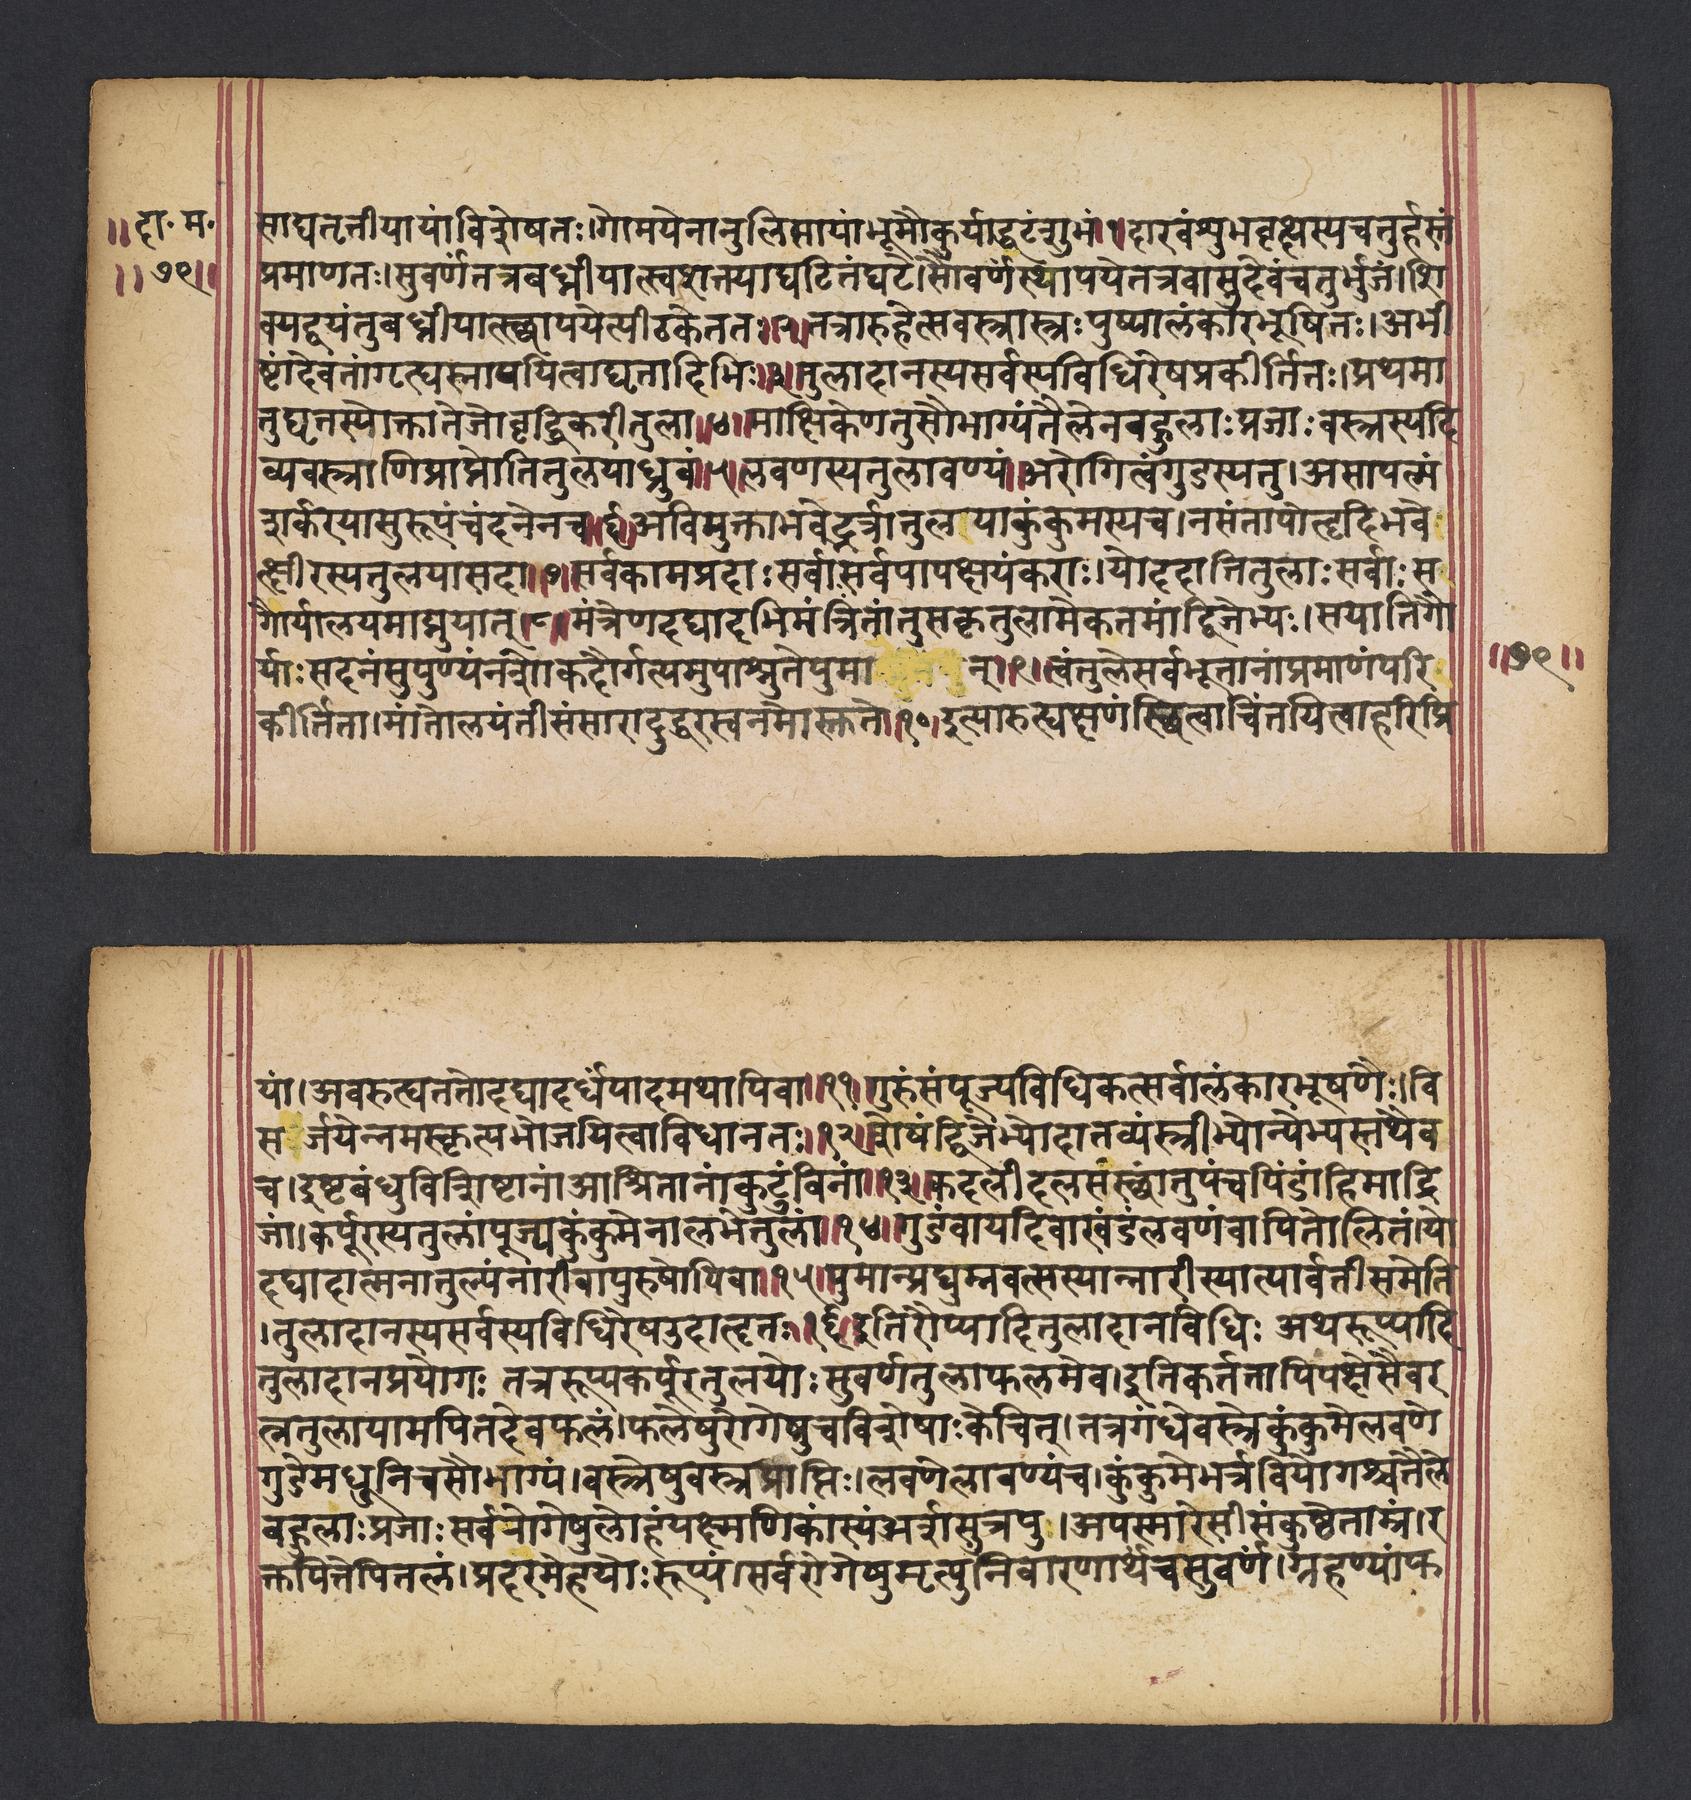 ॥दा॰म॰
॥७९॥
साघतृतीयायांविशेषतः।गोमयेनानुलिप्तायांभूमौकुर्याद्घटंशुभं॥१॥दारवंशुभवृक्षस्यचतुर्हस्तं
प्रमाणतः।सुवर्णंतत्रबध्नीयात्स्वशक्तयाघटितंघटे।सौवर्णंस्थापयेत्तत्रवासुदेवंचतुर्भुजं।शि
क्यद्वयंतुबध्नीयात्स्छापयेत्पीठकेततः॥२॥तत्रारुहेत्सवस्त्रास्त्रःपुष्पालंकारभूषितः।अभी
ष्टांदेवतांगृत्द्यस्नापयित्वाघृतादिभिः॥३॥तुलादानस्यसर्वस्यविधिरेषप्रकीर्त्तितः।प्रथमा
तुघृतस्योक्तातेजोवृद्धिकरीतुला॥४॥माक्षिकेणतुसौभाग्यंतैलेनबहुलाःप्रजाःवस्त्रस्यदि
व्यवस्त्राणिप्राप्नोतितुलयाध्रुवं॥५॥लवणस्यतुलावण्यं॥अरोगित्वंगुडस्यतु।असापत्नं
शर्करयासुरूपंचंदनेनच॥६॥अवियुक्ताभवेद्भर्त्रातुलयाकुंकुमस्यच।नसंतापोत्हृदिभवे
त्क्षीरस्यतुलयासदा॥७॥सर्वकामप्रदाःसर्वासर्वपापक्षयंकराः।योददातितुलाःसर्वाःस
गौर्यालयमाप्नुयात्॥८॥मंत्रेणदद्यादभिमंत्रितांतुसकृतुलामेकतमांद्विजेभ्यः।सयातिगौ
र्याःसदनंसुपुण्यंनशोकदौर्गत्यमुपाश्नुतेपुमान्॥९॥त्वंतुलेसर्वभूतानांप्रमाणंपरि
॥७९॥
कीर्त्तिता।मांतोलयंतीसंसारादुद्धरस्वनमोस्तुते॥१०॥इत्यारुत्द्यक्षणंस्छित्वाचिंतयित्वाहरिप्रि
यां।अवरुत्द्यततोदद्यादर्धंपादमथापिवा॥११॥गुरुंसंपूज्यविधिवत्सर्वालंकारभूषणैः।वि
सर्जयेन्नमस्कृत्यभोजयित्वाविधानतः॥१२॥शेषंद्विजेभ्योदातव्यंस्त्रीभ्योन्येभ्यस्तथैव
च।इष्टबंधुविशिष्टानांआश्रितानांकुटुंबिनां॥१३॥कदलीदलसंस्छांतुपंचपिंडांहिमाद्रि
जां।कर्पूरस्यतुलांपूज्यकुंकुमेनालभेत्तुलां॥१४॥गुडंवायदिवाखंडंलवणंवापितोलितं।यो
दद्यादात्मनातुल्यंनारीवापुरुषोपिवा॥१५॥पुमान्प्रद्युम्नवत्सस्यान्नारीस्यात्पार्वतीसमेति
।तुलादानस्यसर्वस्यविधिरेषउदात्दृतः॥१६॥इतिरौप्यादितुलादानविधिः अथरूप्यादि
तुलादानप्रयोगः तत्ररूप्यकर्पूरतुलयोःसुवर्णतुलाफलमेव।इतिकर्तव्यतापिपक्षेसैवर
त्नतुलायामपितदेवफलं।फलेषुरोगेषुचविशेषाःकेचित्।तत्रगंधेवस्त्रेकुंकुमेलवणे
गुडेमधुनिचसौभाग्यं।वस्त्रेषुवस्त्रप्राप्तिः।लवणेलावण्यंच।कुंकुमेभर्त्रवियोगश्चतैले
बहुलाःप्रजाःसर्वरोगेषुलोहंयक्ष्मणिकांस्यंअर्शसुत्रपु।अपस्मारेसीसंकुष्ठेताम्रं।र
क्तपित्तेपित्तलं।प्रदरमेहयोःरूप्यं।सर्वरोगेषुमृत्युनिवारणार्थंचसुवर्णं।ग्रहण्यांफ